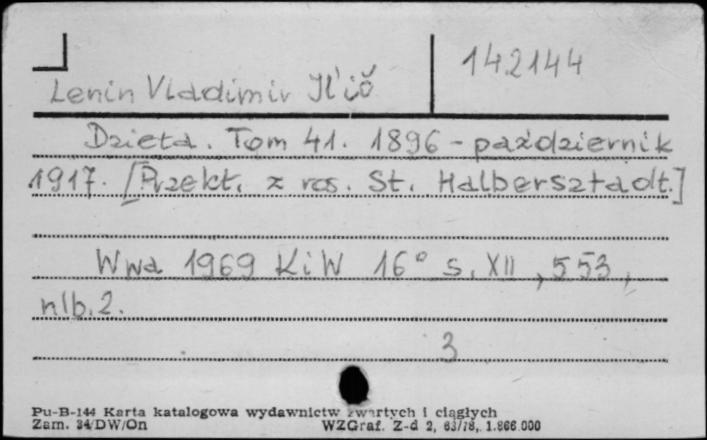 142144
Lenin Vladimir Il'ič
Dzieła. Tom 41. 1896 - październik
1917. [Przekł. z ros. St. Halbersztadt.]
Wwa 1969 KiW 16° s. XII, 553,
nlb. 2.
3
Pu-B-144 Karta katalogowa wydawnictw zwartych i ciągłych
Zam. 34/DW/On WZGraf. Z-d 2, 63/78, 1.866.000